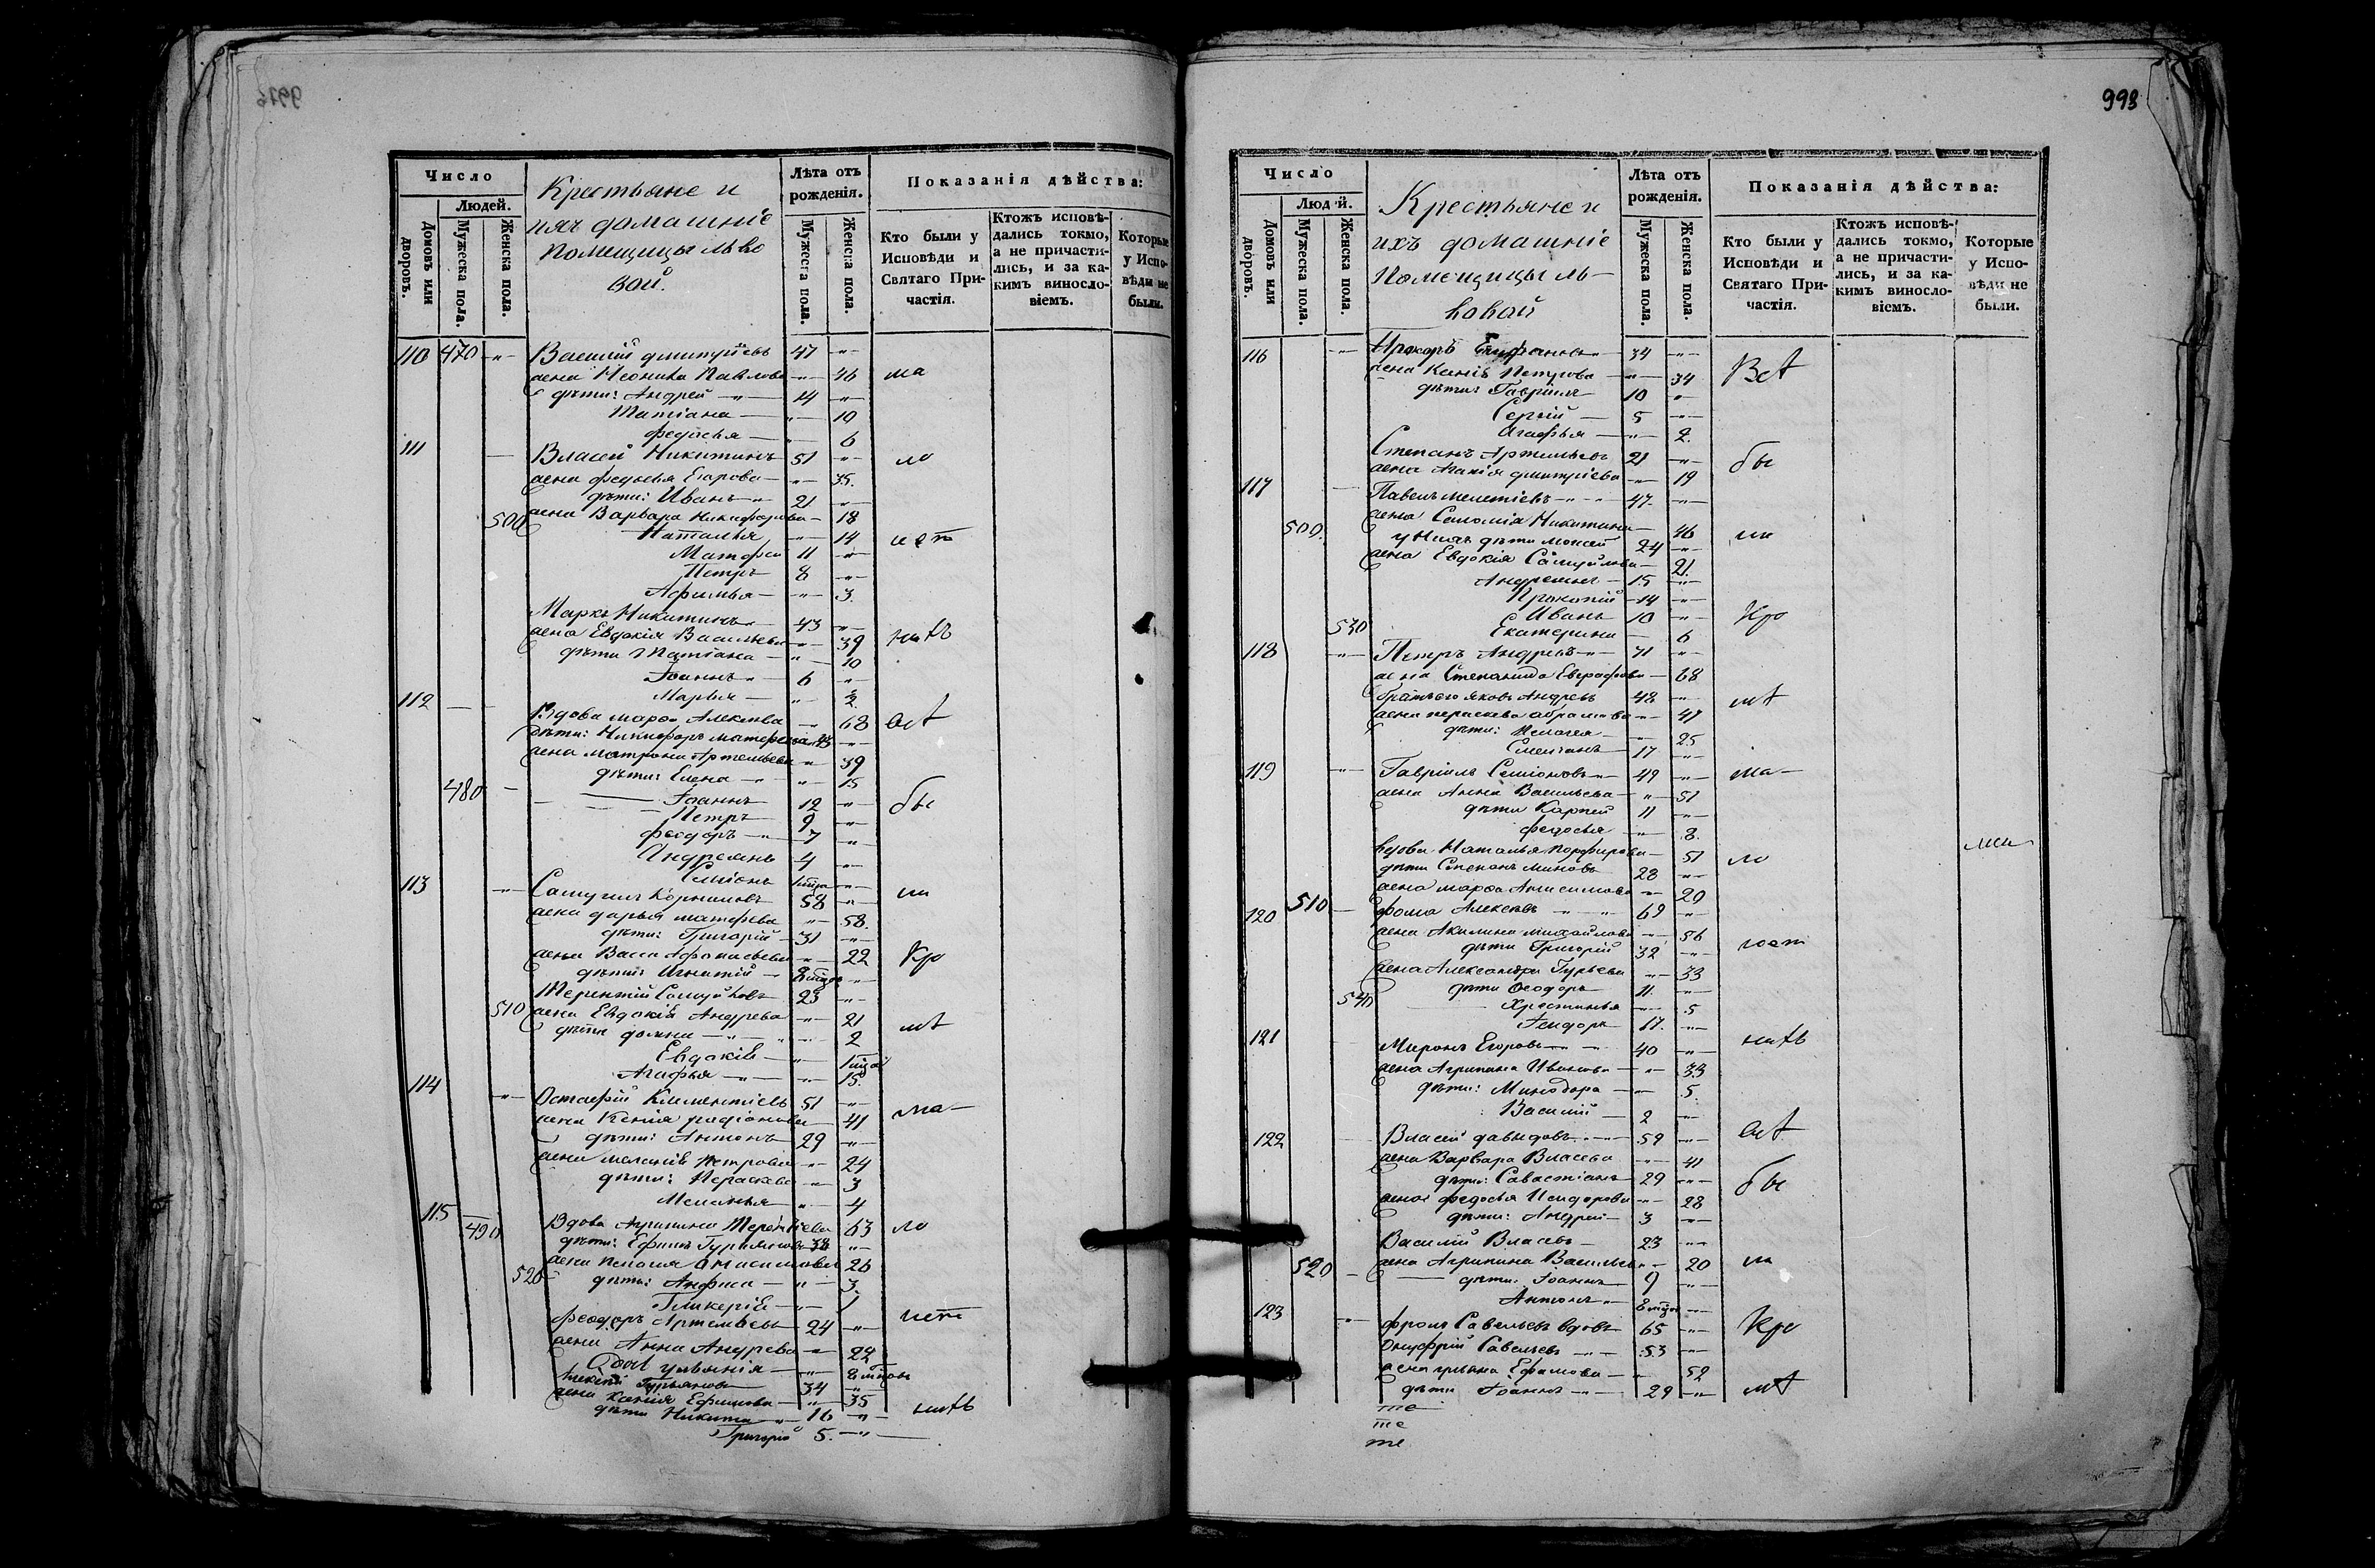 993
Число
Людей.
Домовъ или дворовъ.
Мужеска пола.
Женска пола.
Крестьяне и
ихъ домашніе
Помещицы Льво
вой.
Лѣта отъ рожденія.
Мужеска пола.
Женска пола.
Показанія дѣйства:
Кто были у Исповѣди и Святаго Причастія.
Ктожъ исповѣдались токмо, а не причастились, и за какимъ винословіемъ.
Которые у Исповѣди не были.
110 470 -"- Василій Дмитріевъ 47 -"-
жена Неонила Павлова -"- 46
дѣти: Андрей -"- 14 -"-
Татіана -"- 10
Федосья -"- 6
111 Власей Никитинъ 51 -"-
жена Федосья Егорова -"- 35.
дѣти: Иванъ -"- 21 -"-
500 жена Варвара Никифорова - 18
Наталья -"- 14
Матфей 11 -"-
Петръ 8 -"-
Афимья -"- 3.
Марко Никитинъ 43 -"-
жена Евдокія Васильева -"- 39
дѣти Татіана -"- 10
Іоаннъ -"- 6 -"-
Марья -"- 2.
112 Вдова Марфа Алексѣева -"- 68
дѣти: Никифоръ Матфеевъ 43 -"-
жена Матрона Артемьева -"- 39
дѣти: Елена -"- 15
480 Іоаннъ 12 -"-
Петръ 9 -"-
Феодоръ -"- 7 -"-
Андреянъ 4 -"-
Симіонъ -"-
113 -"- Самуилъ Корниловъ 58 -"-
жена Дарья Матфева -"- 58.
дѣти: Григорій 31 -"-
жена Васса Афонасьева -"- 22
дѣти: Игнатій -"-
Терентій Самуйловъ 23 -"-
510 жена Евдокія Андрева -"- 21
дѣти Домна -"- 2
Евдокія -"-
Агафья -"- 15.
114 -"- Остафій Климентіевъ 51 -"-
жена Ксенія Родіонова 41
дѣти: Антонъ 29 -"-
жена Меланія Петрова -"- 24
дѣти: Параскева -"- 3
Меланья -"- 4
115 490 Вдова Агрипина Терентіева 63
дѣти: Ефимъ Гурьяновъ 38 -"-
жена Пелагія Анисимова 26
520 дѣти: Анфиса -"- 3.
Гликерія -"- 1
Феодоръ Артемьевъ 24 -"-
жена Анна Андрева -"- 22
Гурьяновъ 34 -"-
жена Ксенія Ефимова -"- 35
дѣти Никита -"- 16 -"-
Григорій 5. -"-
Число
Людей.
Домовъ или дворовъ.
Мужеска пола.
Женска пола.
Крестьяне и
ихъ домашніе
Помещицы Ль-
вовой
Лѣта отъ рожденія.
Мужеска пола.
Женска пола.
Показанія дѣйства:
Кто были у Исповѣди и Святаго Причастія.
Ктожъ исповѣдались токмо, а не причастились, и за какимъ винословіемъ.
Которые у Исповѣди не были.
116 -"- Прохоръ 34 -"-
жена Ксенія Петрова -"- 34
дѣти: Гавріилъ 10 -"-
Сергій 5 -"-
Агафья -"- 2.
Степанъ Артемьевъ 21 -"-
жена Агапія Дмитріева -"- 19
117 Павелъ Мелетіевъ -"- 47 -"-
500. жена Соломія Никитина 46
у нихъ дѣти Моисей 24 -"-
жена Евдокія Самуйлова 21.
Андреянъ 15 -"-
Прокопій 14 -"-
Иванъ 10 -"-
530 Екатерина 6
118 -"- Петръ Андреевъ -"- 71 -"-
жена Степанида Евграфова 68
братъ его Яковъ Андреевъ 48 -"-
жена Параскева Абрамова -"- 47
дѣти: Пелагея -"- 25
Степанъ 17 -"-
119 -"- Гавріилъ Семіоновъ 49 -"-
жена Анна Васильева -"- 51
дѣти Карпей 11 -"-
Федосья -"- 8.
вдова Наталья Порфирова 51
дѣти Степанъ Миновъ 28 -"-
жена Марфа Анисимова -"- 20
120 510 Фома Алексѣевъ -"- 69 -"-
жена Акилина Михайлова -"- 56
дѣти Григорій 32 -"-
жена Александра Гурьева -"- 33
540 дѣти Феодоръ 11 -"-
Хрестинья -"- 5
Исидоръ 17. -"-
121 Миронъ Егоровъ -"- 40 -"-
жена Агрипина Иванова -"- 33
дѣти: Минодора -"- 5.
Василій 2 -"-
122 Власей Давыдовъ -"- 59 -"-
жена Варвара Власева -"- 41
дѣти: Савастіанъ 29 -"-
жена Федосья Исидорова -"- 28
дѣти: Андрей 3 -"-
Василій Власовъ 23 -"-
520 жена Агрипина Васильева -"- 20
дѣти: Іоаннъ 9 -"-
Антонъ -"-
123 -"- Фролъ Савельевъ вдовъ 65 -"-
Онуфрій Савельевъ -"- 53 -"-
жена Ульяна Ефимова -"- 52
дѣти Іоаннъ -"- 29 -"-
те
те
те